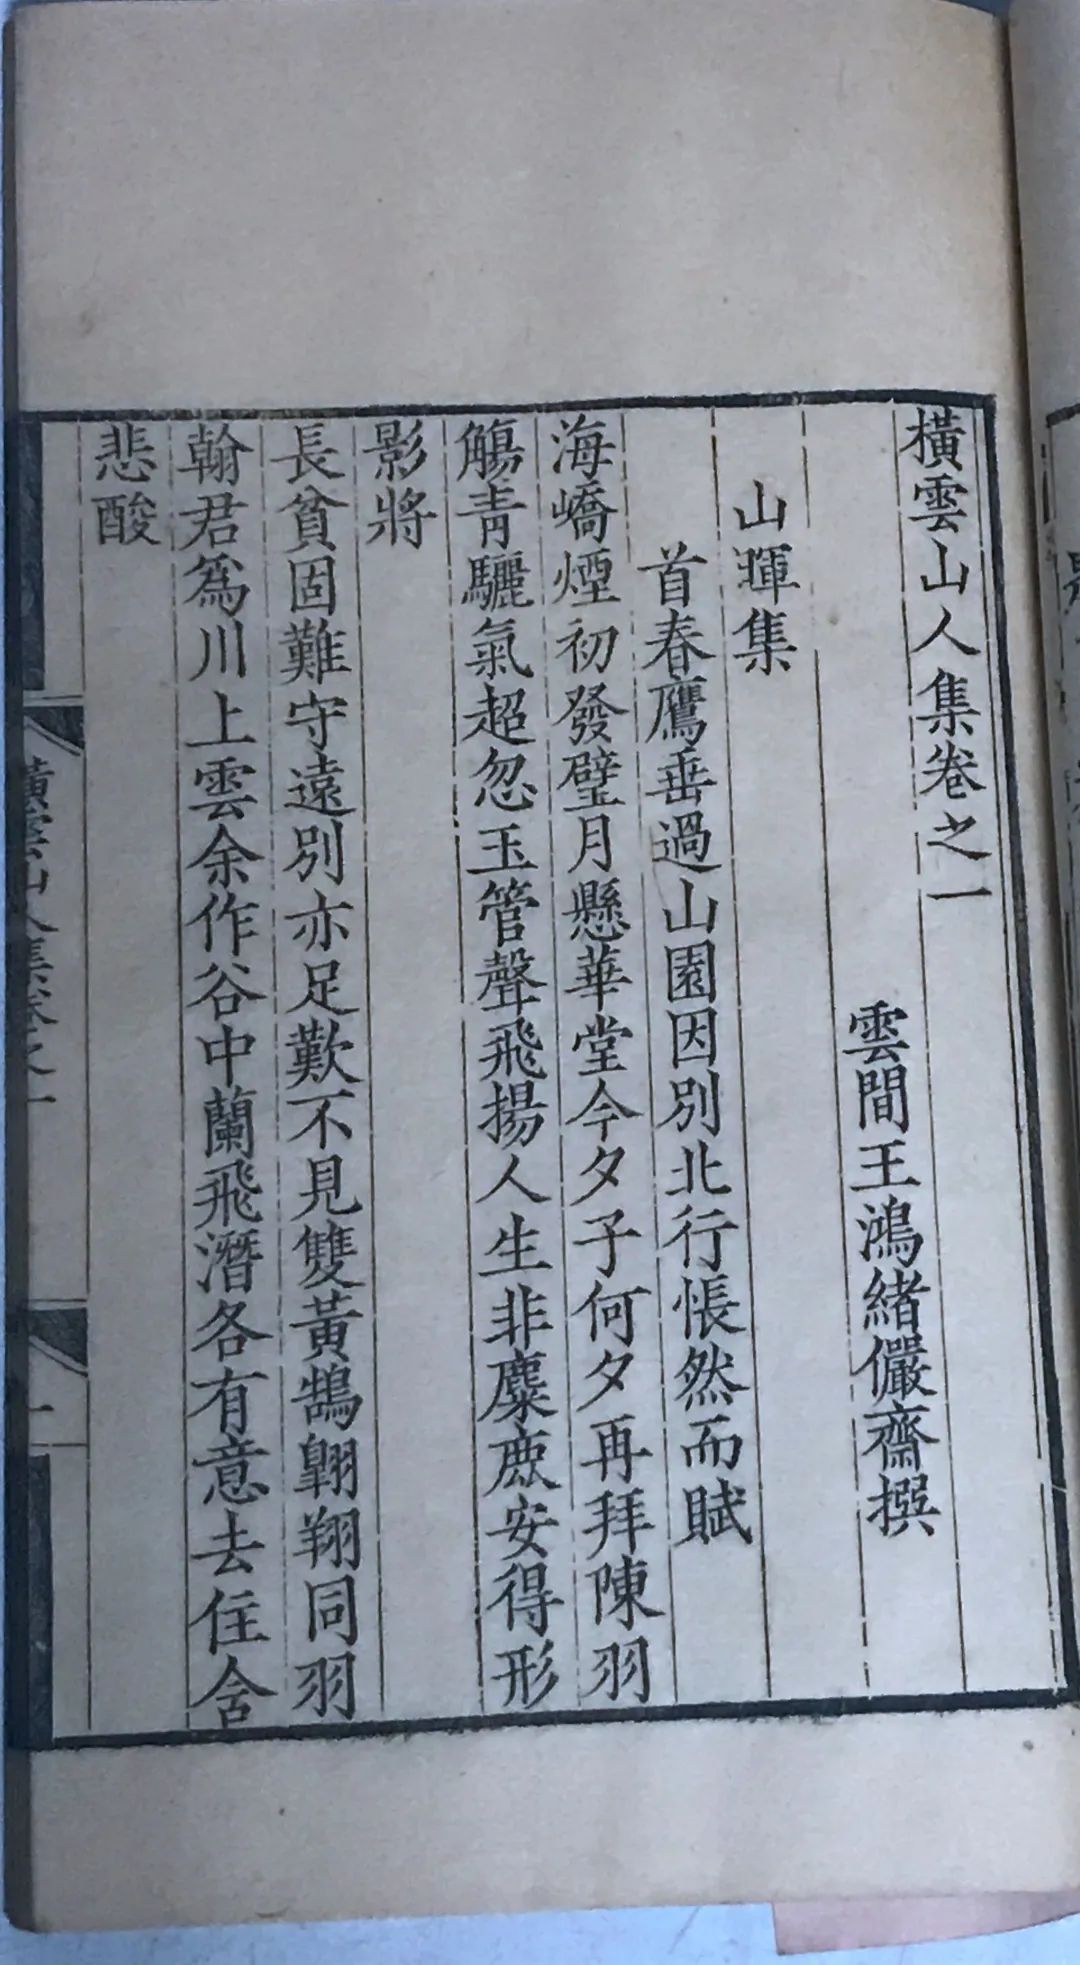 橫雲山人集卷之一
雲間王鴻緒儼齋撰
山暉集
首春鷹垂過山園因別北行悵然而賦
海嶠煙初發璧月懸華堂今夕子何夕再拜陳羽
觴青驪氣超忽玉管聲飛揚人生非麋麀安得形
影將
長貧固難守遠別亦足歎不見雙黃鵠翺翔同羽
翰君為川上雲余作谷中蘭飛潛各有意去住含
悲酸
橫雲山人集卷之一
一